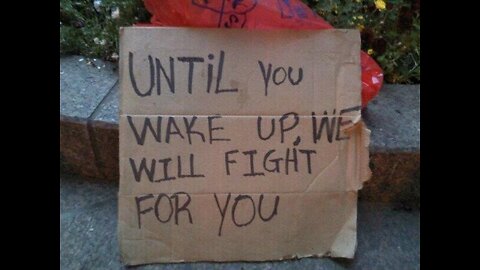 UNTiL YOU
WAKE UP, WE
WILL FIGHT
FOR YOU